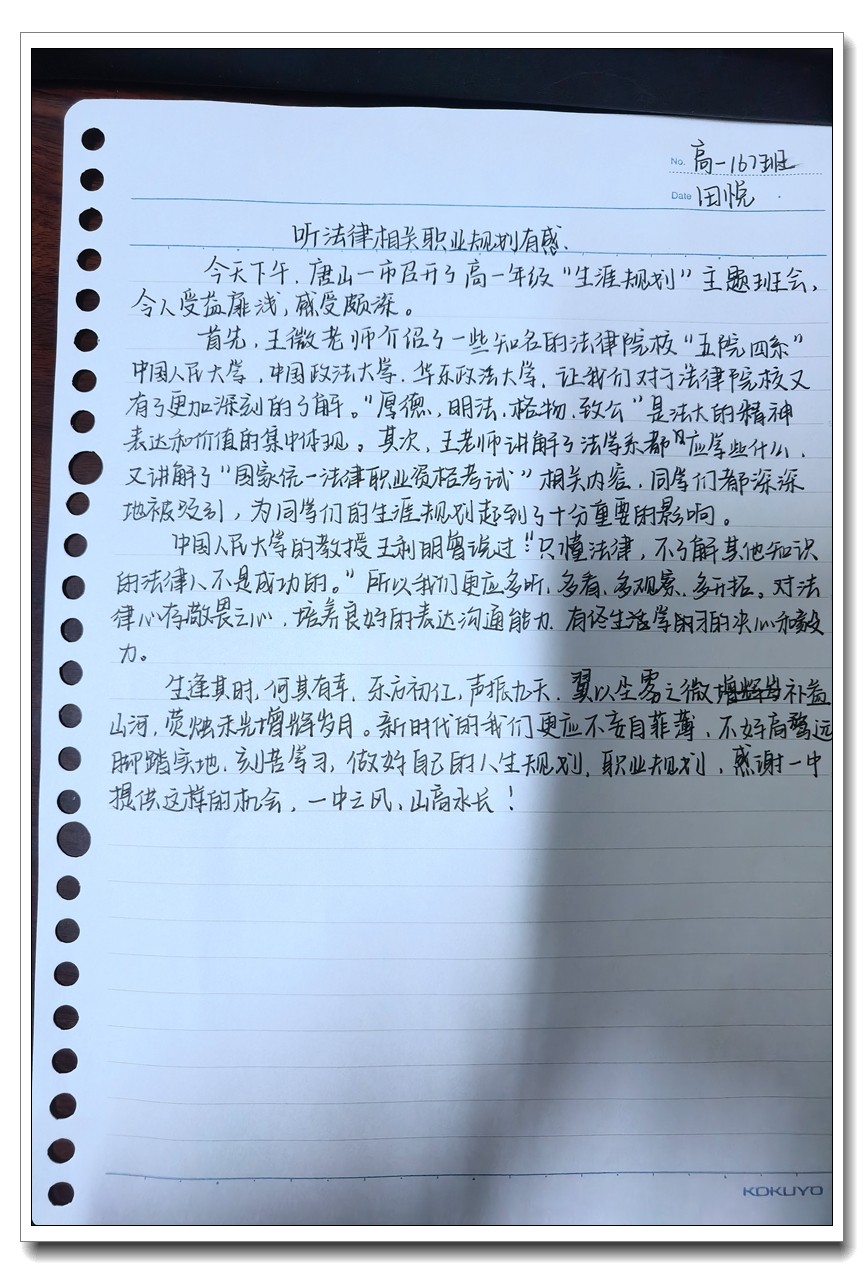 No. 高一167班
Date 田悦
听法律相关职业规划有感.
今天下午,唐山一市召开了高一年级“生涯规划”主题班会,
令人受益匪浅,感受颇深。
首先,王微老师介绍了一些知名的法律院校“五院四系”
中国人民大学,中国政法大学,华东政法大学,让我们对于法律院校又
有了更加深刻的了解。“厚德,明法,格物,致公”是法大的精神
表达和价值的集中体现。其次,王老师讲解了法学系都应学些什么,
又讲解了“国家统一法律职业资格考试”相关内容,同学们都深深
地被吸引,为同学们的生涯规划起到了十分重要的影响。
中国人民大学的教授王利明曾说过:“只懂法律,不了解其他知识
的法律人不是成功的。”所以我们更应多听,多看,多观察,多开拓。对法
律心存敬畏之心,培养良好的表达沟通能力,有终生学习的决心和毅
力。
生逢其时,何其有幸,东方初红,声振九天,翼以尘雾之微补益
山河,荧烛末光增辉岁月。新时代的我们更应不妄自菲薄,不好高骛远
脚踏实地,刻苦学习,做好自己的人生规划,职业规划,感谢一中
提供这样的机会,一中之风,山高水长!
KOKUYO